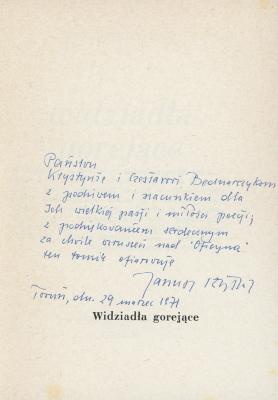 Państwu
Krystynie i Czesławowi Bednarczykom
z podziwem i szacunkiem dla
Ich wielkiej pasji i miłości poezji,
z podziękowaniem serdecznym
za chwile wzruszeń nad "Oficyną"
ten tomik ofiarowuje
Janusz
Toruń, dn. 29 marzec 1971
Widziadła gorejące